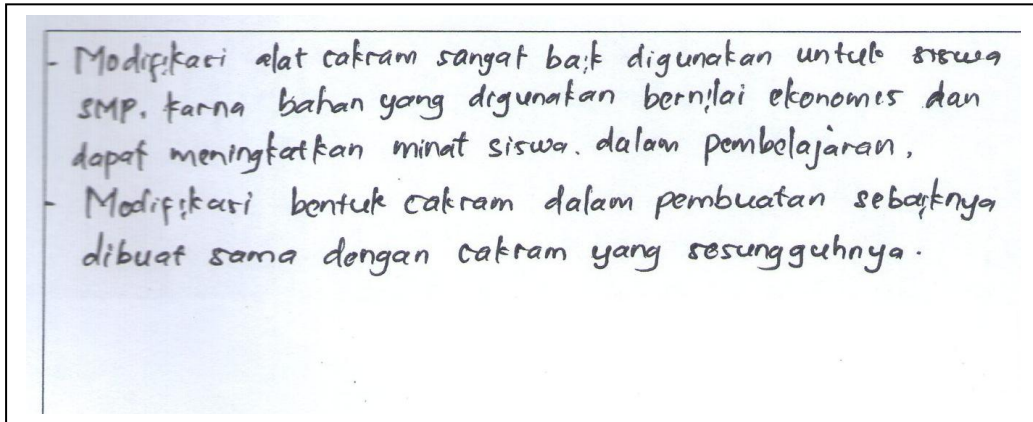 - Modifikasi alat cakram sangat baik digunakan untuk siswa
SMP. karna bahan yang digunakan bernilai ekonomis dan
dapat meningkatkan minat siswa. dalam pembelajaran.
- Modifikasi bentuk cakram dalam pembuatan sebaiknya
dibuat sama dengan cakram yang sesungguhnya.